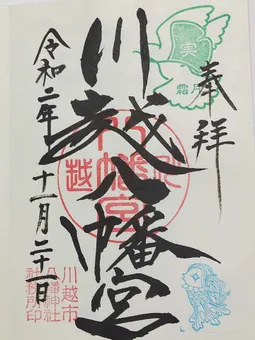 奉拝
川越八幡宮
令和二年十一月二十一日
実
霜月
川越市
八幡神社
社務所印